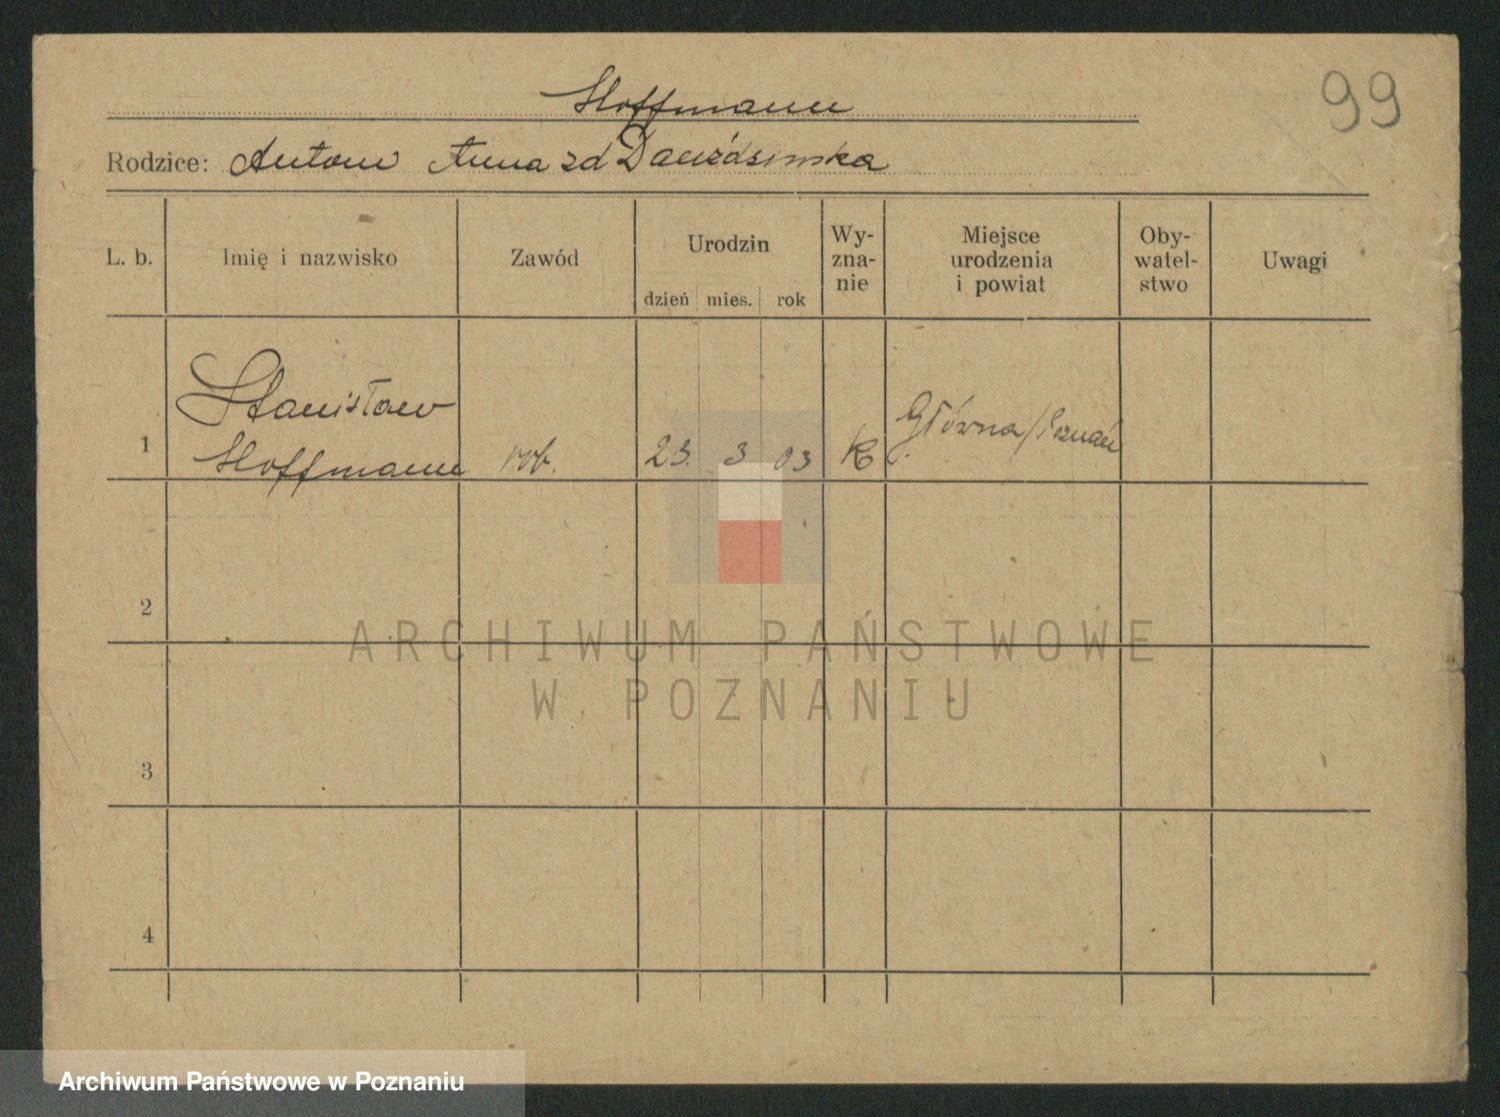 99
Hoffmann
Rodzice: Antoni Anna zd
L. b.
Imię i nazwisko
Zawód
Urodzin
dzień mies. rok
Wy-
zna-
nie
Miejsce
urodzenia
i powiat
Oby-
watel-
stwo
Uwagi
1
Stanisław
Hoffmann
rob.
23. 3 03
K
Główna/Poznań
2
3
4
ARCHIWUM PAŃSTWOWE
W POZNANIU
Archiwum Państwowe w Poznaniu